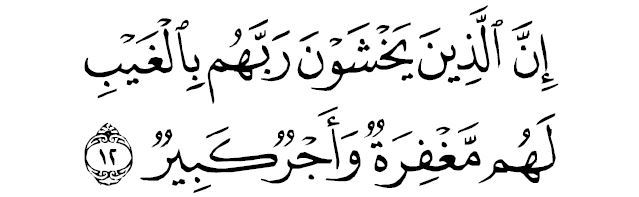 إِنَّ ٱلَّذِينَ يَخْشَوْنَ رَبَّهُم بِٱلْغَيْبِ
لَهُم مَّغْفِرَةٌ وَأَجْرٌ كَبِيرٌ ١٢